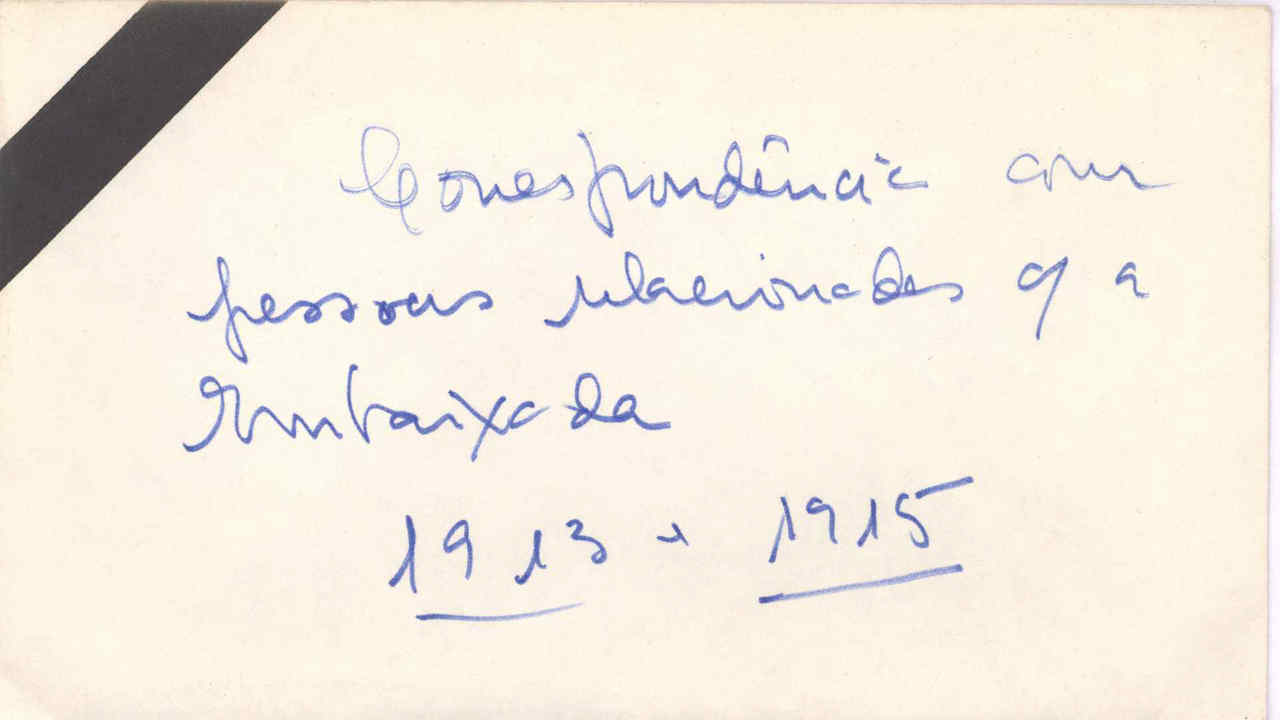 Correspondência com
pessoas relacionadas c/ a
Embaixada
1913 a 1915